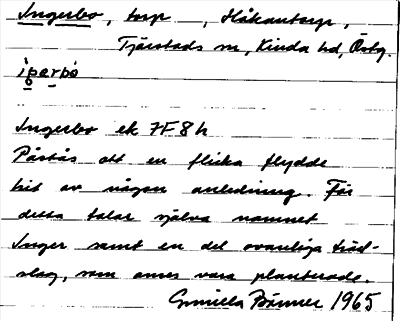 Ingerbo, torp , Håkantorp,
Tjärstads sn, Kinda hd, Östg.
Ingerbo ek 7F8h
Påstås att en flicka flydde
hit av någon anledning. För
detta talar själva namnet
Inger samt en del ovanliga träd-
slag, som anses vara planterade.
Gunilla 1965